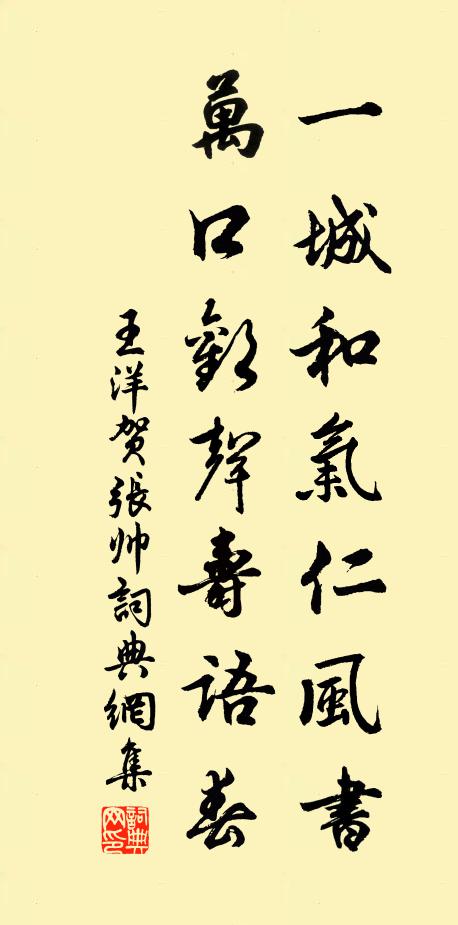 一城和氣仁風書
萬口歡聲壽語春
王洋賀張帅詞典網集
詞典網印